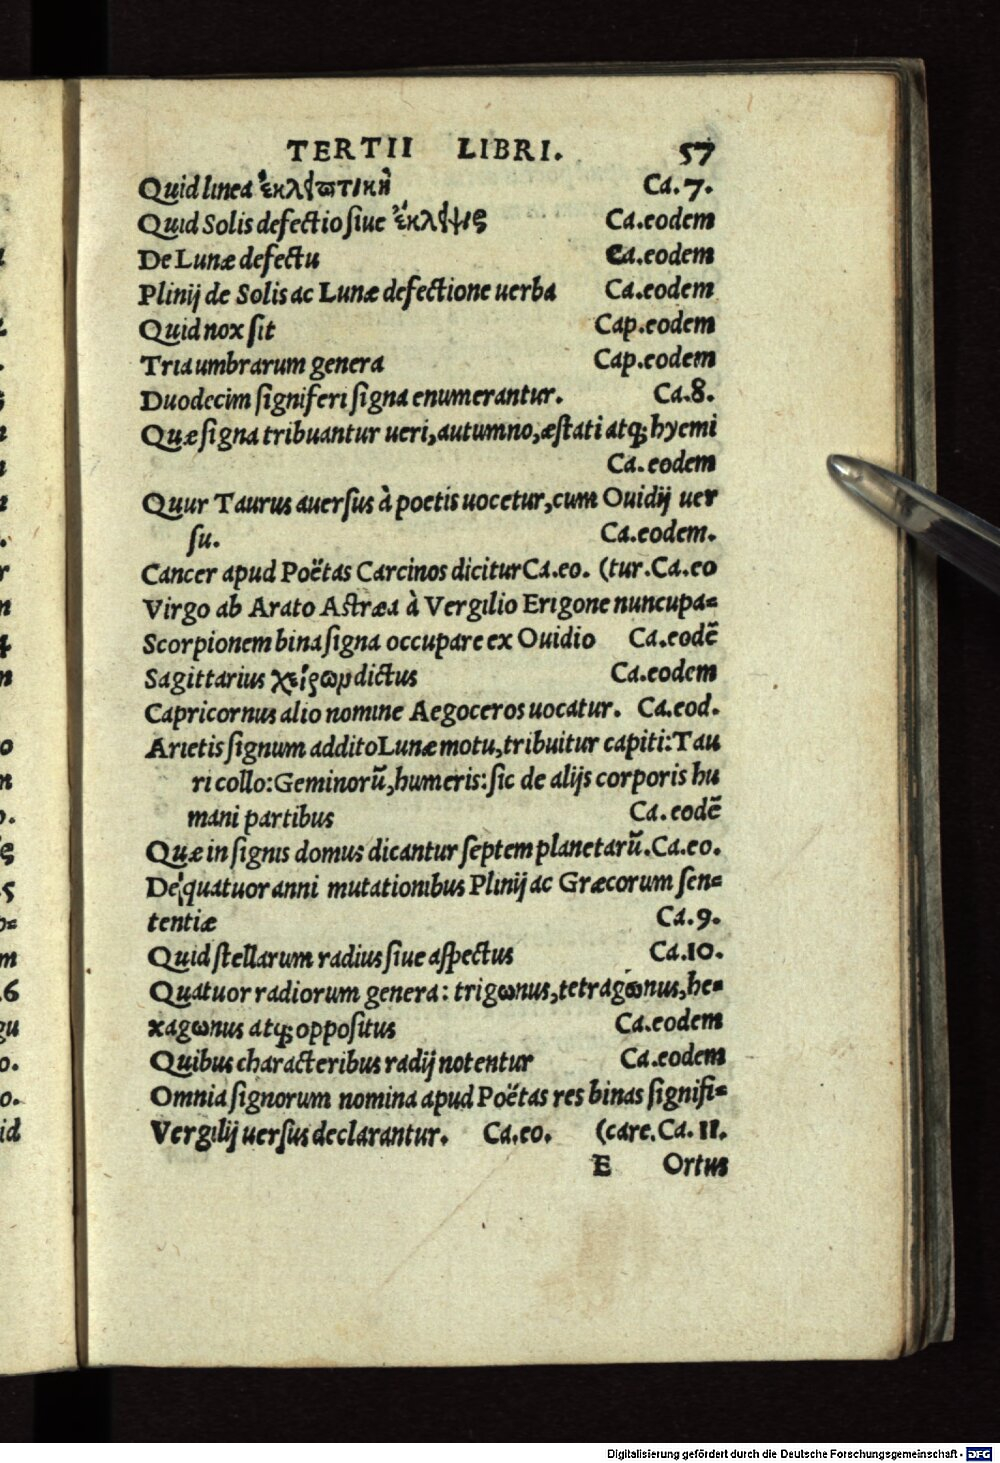 TERTII LIBRI. 57
Quid linea ἐκλειπτικὴ Ca.7.
Quid Solis defectio siue ἔκλειψις Ca.eodem
De Lunæ defectu Ca.eodem
Plinij de Solis ac Lunæ defectione uerba Ca.eodem
Quid nox sit Cap.eodem
Tria umbrarum genera Cap.eodem
Duodecim signiferi signa enumerantur. Ca.8.
Quæ signa tribuantur ueri, autumno, æstati atq; hyemi
Ca.eodem
Quur Taurus auersus à poetis uocetur, cum Ouidij uer
su. Ca.eodem.
Cancer apud Poëtas Carcinos dicitur Ca.eo. (tur.Ca.eo
Virgo ab Arato Astræa à Vergilio Erigone nuncupa=
Scorpionem bina signa occupare ex Ouidio Ca.eodē
Sagittarius χείρων dictus Ca.eodem
Capricornus alio nomine Aegoceros uocatur. Ca.eod.
Arietis signum addito Lunæ motu, tribuitur capiti: Tau
ri collo: Geminorū, humeris: sic de alijs corporis hu
mani partibus Ca.eodē
Quæ in signis domus dicantur septem planetarū. Ca.eo.
De quatuor anni mutationibus Plinij ac Græcorum sen=
tentiæ Ca.9.
Quid stellarum radius siue aspectus Ca.10.
Quatuor radiorum genera: trigωnus, tetragωnus, he=
xagωnus atq; oppositus Ca.eodem
Quibus characteribus radij notentur Ca.eodem
Omnia signorum nomina apud Poëtas res binas signifi=
Vergilij uersus declarantur. Ca.eo. (care.Ca.11.
E Ortus
Digitalisierung gefördert durch die Deutsche Forschungsgemeinschaft - DFG